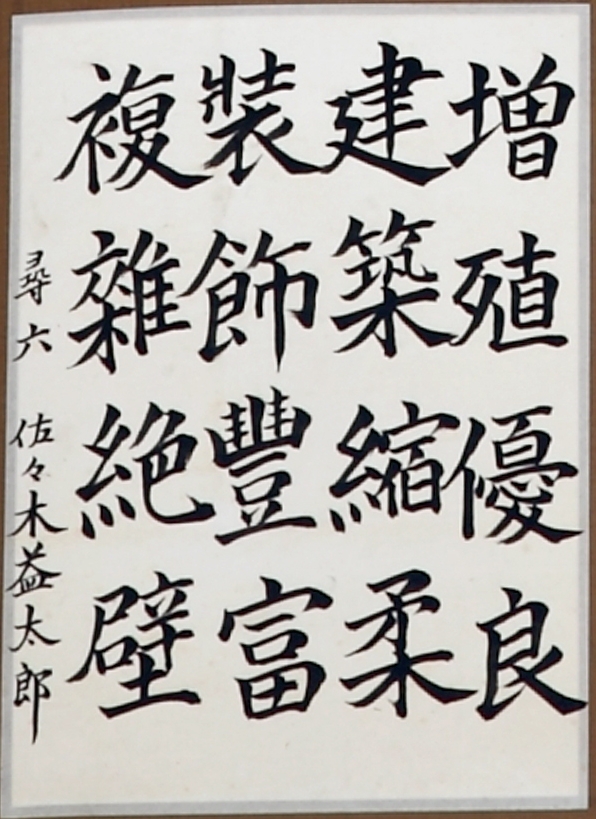 増殖優良
建築縮柔
装飾豐富
複雜絶壁
尋六 佐々木益太郎